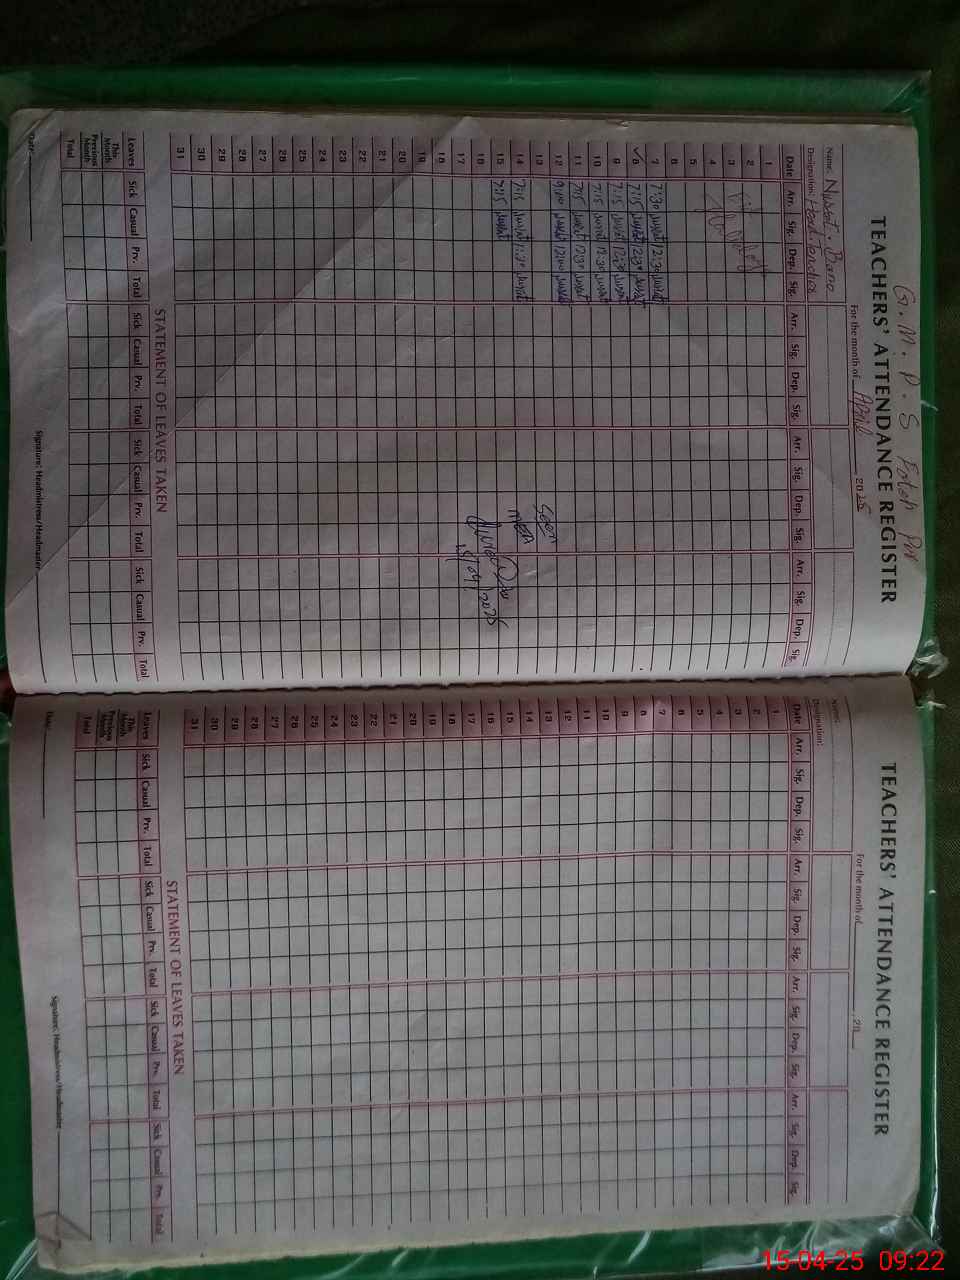 G.M.P.S Fateh Pur
TEACHERS' ATTENDANCE REGISTER
For the month of April 2025
Name: Nusrat Bano
Designation: Head teacher
Date Arr. Sig. Dep. Sig. Arr. Sig. Dep. Sig. Arr. Sig. Dep. Sig. Arr. Sig. Dep. Sig.
1
2
3
4
5
6
7 7:30 Nusrat 12:30 Nusrat
8 7:15 Nusrat 12:30 Nusrat
9 7:15 Nusrat 12:30 Nusrat
10 7:15 Nusrat 12:30 Nusrat
11 7:15 Nusrat 12:30 Nusrat
12 9:00 Nusrat 12:00 Nusrat
13
14 7:15 Nusrat 12:30 Nusrat
15 7:15 Nusrat
16
17
18
19
20
21
22
23
24
25
26
27
28
29
30
31
Seen
MEA
15/04/2025
STATEMENT OF LEAVES TAKEN
Leaves Sick Casual Prv. Total Sick Casual Prv. Total Sick Casual Prv. Total Sick Casual Prv. Total
This Month
Previous Month
Total
Date: Signature: Headmistress/Headmaster
TEACHERS' ATTENDANCE REGISTER
For the month of 20
Name:
Designation:
Date Arr. Sig. Dep. Sig. Arr. Sig. Dep. Sig. Arr. Sig. Dep. Sig. Arr. Sig. Dep. Sig.
1
2
3
4
5
6
7
8
9
10
11
12
13
14
15
16
17
18
19
20
21
22
23
24
25
26
27
28
29
30
31
STATEMENT OF LEAVES TAKEN
Leaves Sick Casual Prv. Total Sick Casual Prv. Total Sick Casual Prv. Total Sick Casual Prv. Total
This Month
Previous Month
Total
Date: Signature: Headmistress/Headmaster
15-04-25 09:22